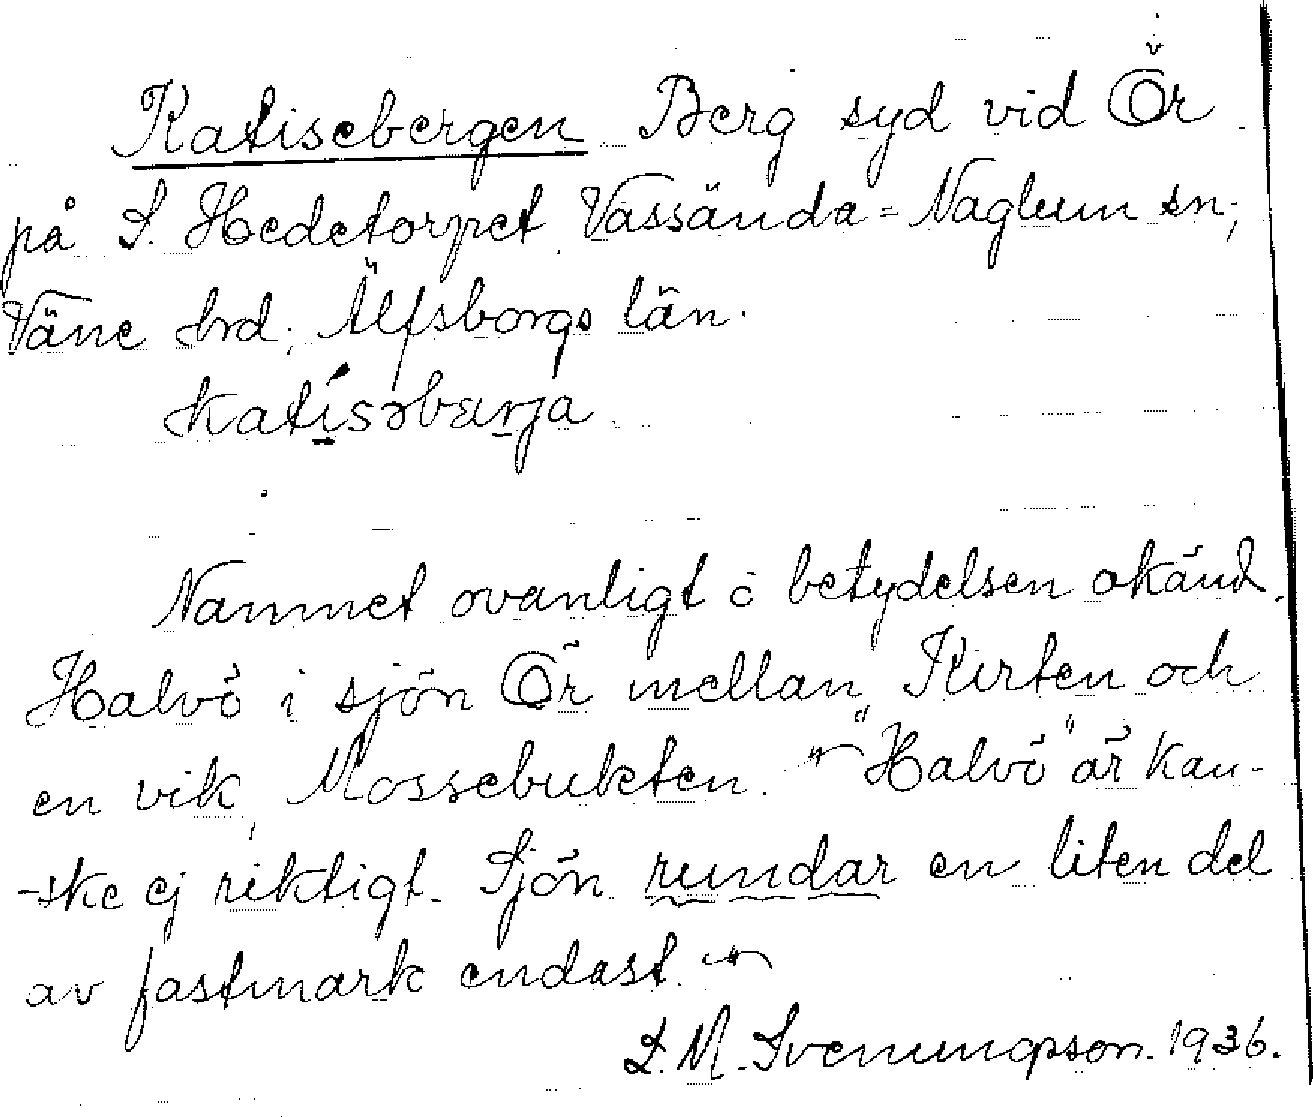 Katisebergen Berg syd vid Ör
på S. Hedetorpet Vassända=Naglum sn;
Väne hrd; Älfsborgs län.
katísəbærja
Namnet ovanligt o betydelsen okänd.
Halvö i sjön Ör mellan Kirten och
en vik, Mossebukten. "Halvö" är kan-
-ske ej riktigt. Sjön rundar en liten del
av fastmark endast.
S. M. Svenungsson. 1936.